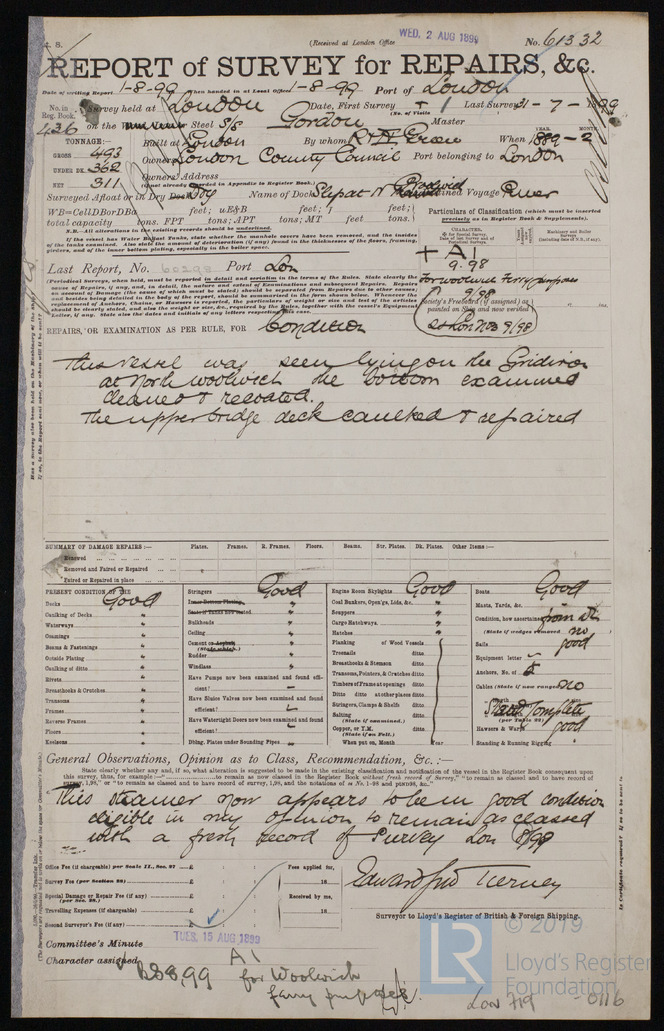 WED. 2 AUG 1899
(Received at London Office
No. 61332
REPORT of SURVEY for REPAIRS, &c.
Date of writing Report 1-8-99 When handed in at Local Office 1-8-99 Port of London
No. in Reg. Book. Survey held at London Date, First Survey Last Survey 31-7-1899
436 on the Steel S/S Gordon Master
TONNAGE:— Built at London By whom When 1889-2
GROSS 493
UNDER DK. 362 Owners London County Council Port belonging to London
NET 311 Owners' Address
(if not already recorded in Appendix to Register Book.)
Surveyed Afloat or in Dry Dock Dry Name of Dock Slip at N Woolwich Destined Voyage River
WB=CellDBorDBa feet; uE&B feet; f feet;
total capacity tons. FPT tons; APT tons; MT feet tons.
Particulars of Classification (which must be inserted precisely as in Register Book & Supplements).
N.B.—All alterations in the existing records should be underlined.
+ A1
9.98
For Woolwich Ferry purposes
9.98
Society's Freeboard (if assigned) as painted on Ship and now verified
SS Lon No3 9/98
Last Report, No. 60298 Port Lon
REPAIRS, OR EXAMINATION AS PER RULE, FOR Condition
This vessel was seen lying on the Gridiron
at North Woolwich the bottom examined
cleaned & recoated.
The upper bridge deck caulked & repaired
SUMMARY OF DAMAGE REPAIRS:— Plates. Frames. R. Frames. Floors. Beams. Str. Plates. Dk. Plates. Other Items:—
Renewed
Removed and Faired or Repaired
Faired or Repaired in place
PRESENT CONDITION OF THE
Decks Good
Caulking of Decks "
Waterways "
Coamings "
Beams & Fastenings "
Outside Plating "
Caulking of ditto "
Rivets "
Breasthooks & Crutches "
Transoms "
Frames "
Reverse Frames "
Floors "
Keelsons "
Stringers Good
Inner Bottom Plating "
State if Tanks now tested "
Bulkheads "
Ceiling "
Cement or Asphalt (State which.) "
Rudder "
Windlass "
Have Pumps now been examined and found efficient?
Have Sluice Valves now been examined and found efficient?
Have Watertight Doors now been examined and found efficient?
Dblng. Plates under Sounding Pipes
Engine Room Skylights Good
Coal Bunkers, Open'gs, Lids, &c. "
Scuppers "
Cargo Hatchways "
Hatches "
Planking of Wood Vessels
Treenails ditto
Breasthooks & Stemson ditto
Transoms, Pointers, & Crutches ditto
Timbers of Frame at openings ditto
Ditto ditto at other places ditto
Stringers, Clamps & Shelfs ditto
Salting ditto
(State if examined.)
Copper, or Y.M. ditto
(State if on Felt.)
When put on, Month Year
Boats Good
Masts, Yards, &c.
Condition, how ascertained from dk
(State if wedges removed no
Sails good
Equipment letter
Anchors, No. of 5
Cables (State if now ranged) no
Complete
(per Table 22)
Hawsers & Warps good
Standing & Running Rigging "
General Observations, Opinion as to Class, Recommendation, &c.:—
State clearly whether any, and if so, what alteration is suggested to be made in the existing classification and notification of the vessel in the Register Book consequent upon
This steamer now appears to be in good condition
eligible in my opinion to remain as classed
with a fresh record of Survey Lon 8/99
Office Fee (if chargeable) per Scale II., Sec. 27 £ : : Fees applied for,
Survey Fee (per Section 28) £ : : 18
Special Damage or Repair Fee (if any) (per Sec. 28.) £ : : Received by me,
Travelling Expenses (if chargeable) £ : : 18
Second Surveyor's Fee (if any) £ : :
Tierney
Surveyor to Lloyd's Register of British & Foreign Shipping.
Committee's Minute TUES. 15 AUG 1899
Character assigned A1
BS 8,99 for Woolwich
ferry purposes
© 2019
LR Lloyd's Register
Foundation
Lon 719 - 0116